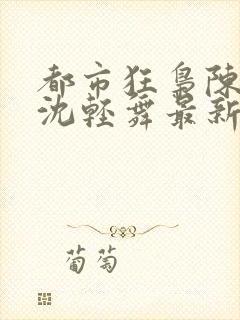 都市狂梟陳
沈輕舞最新
葡萄